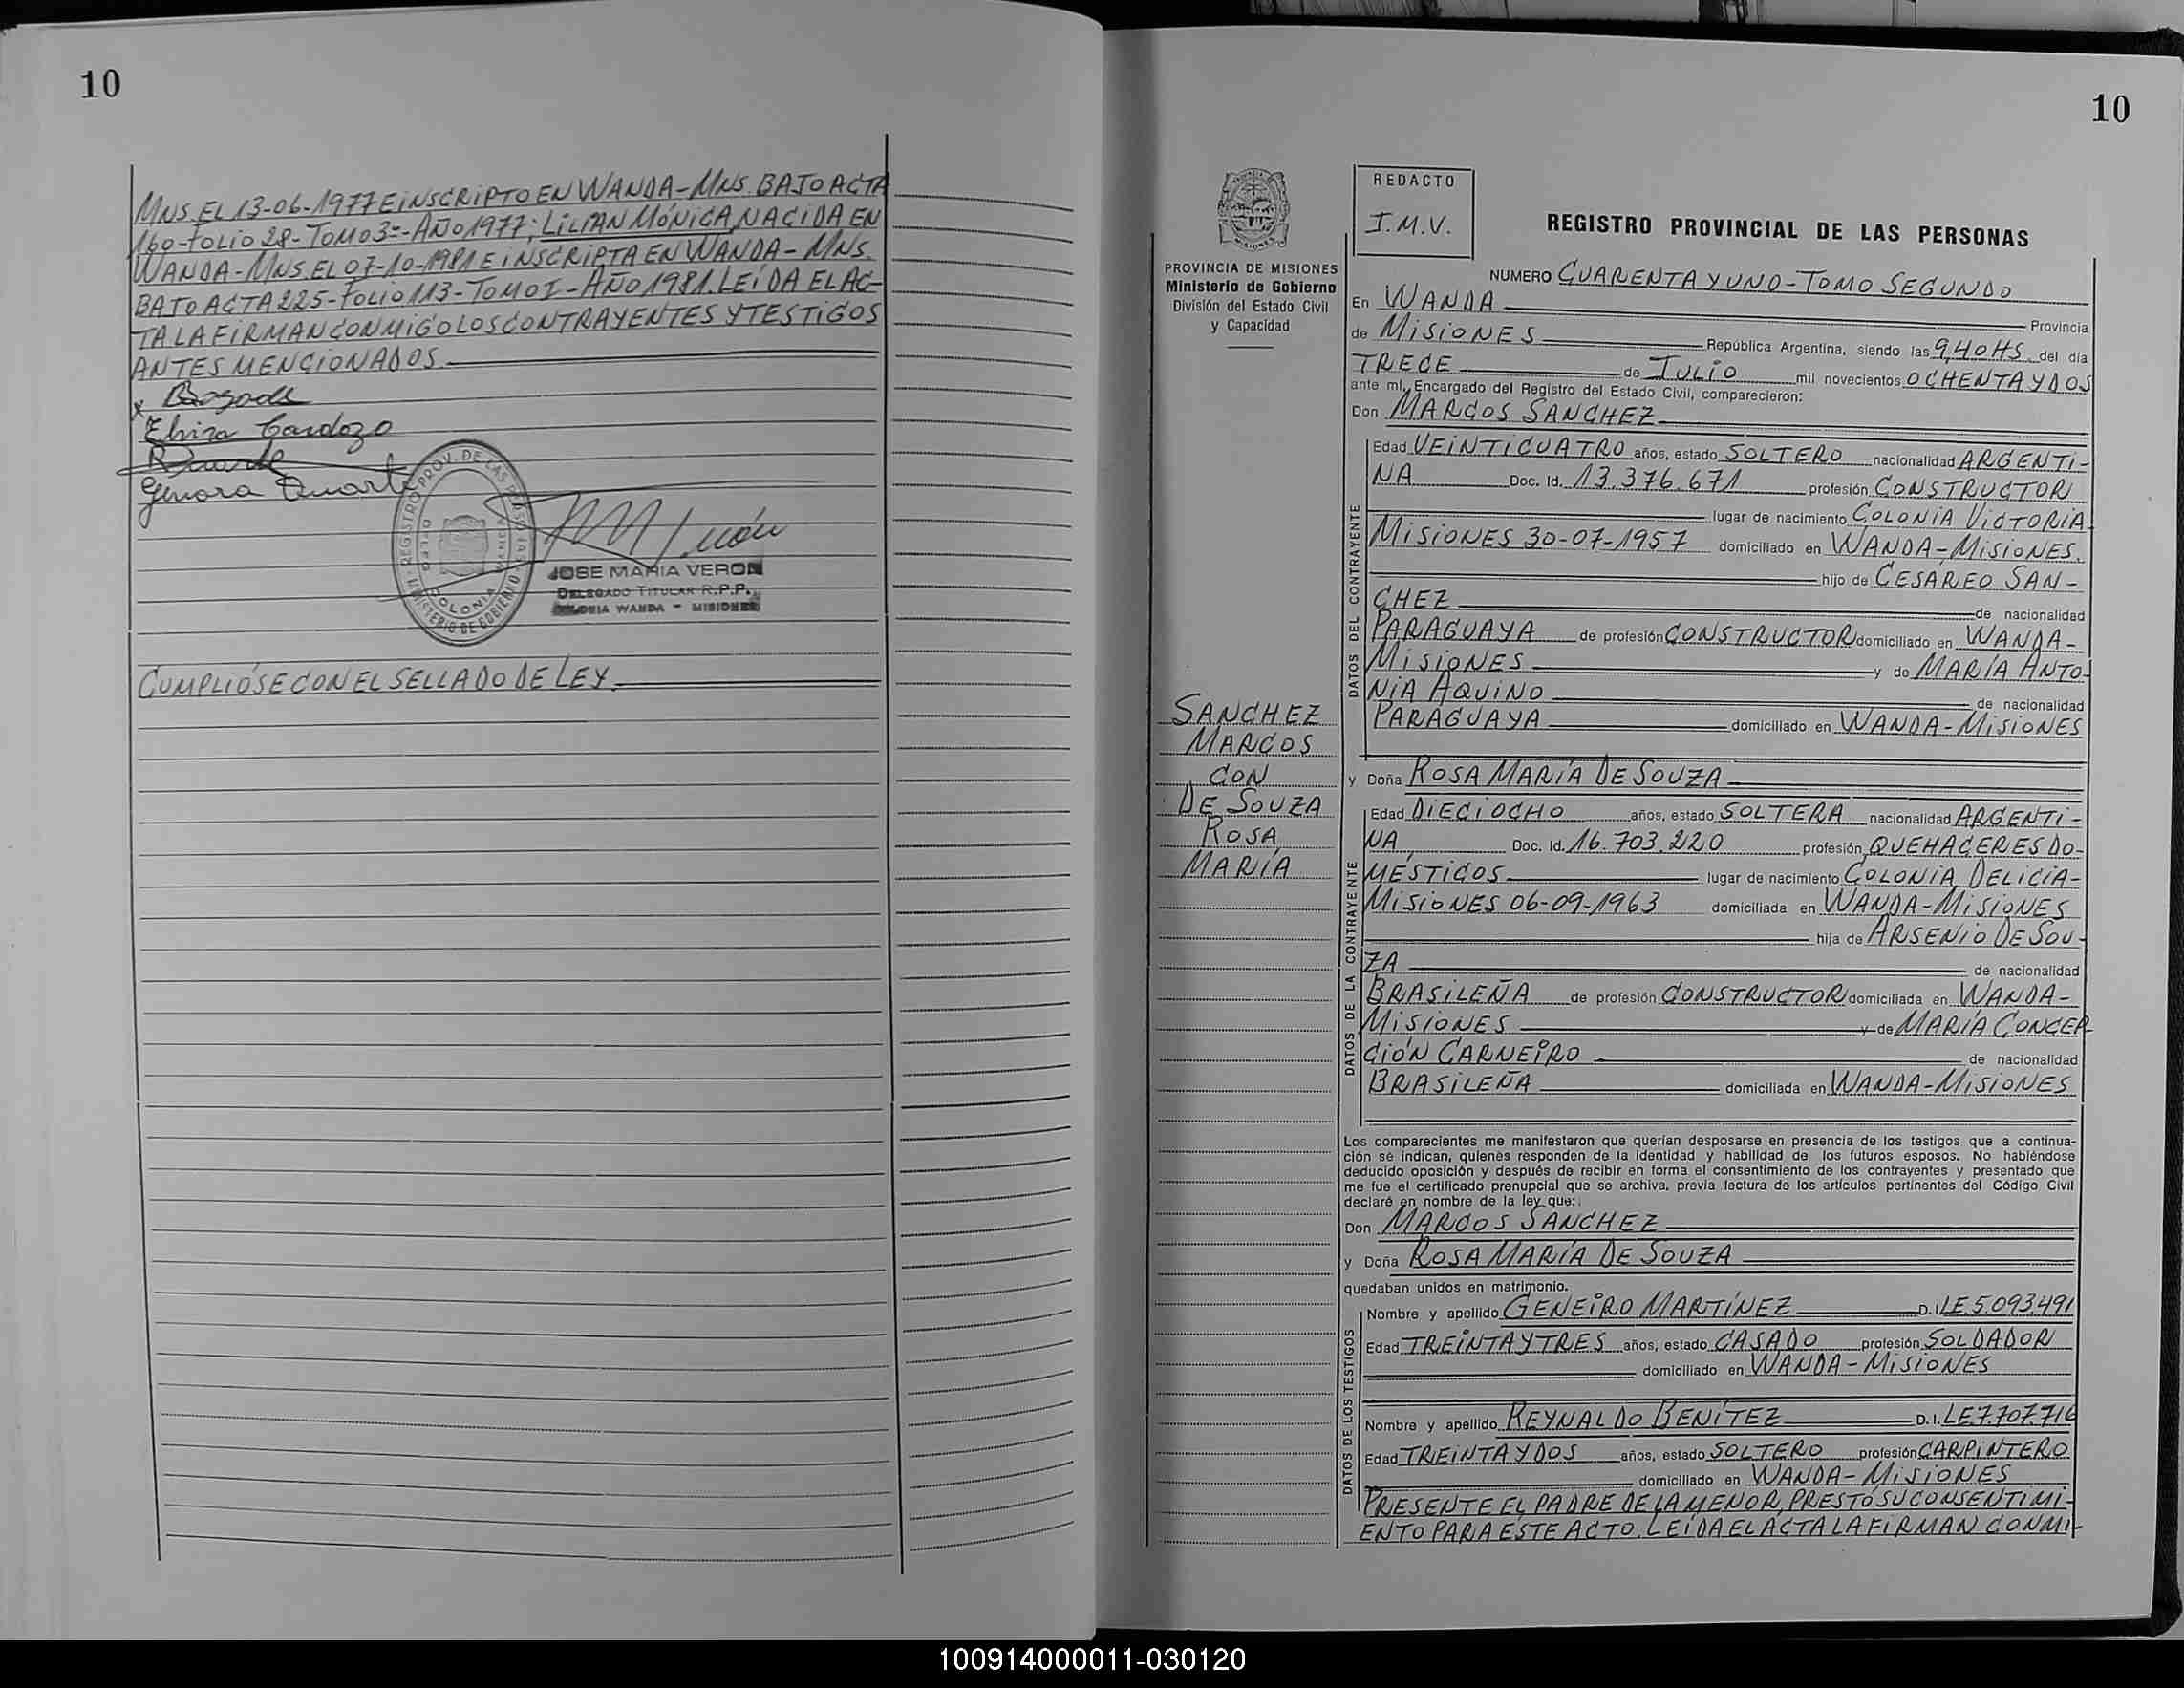 10
MNS. EL 13-06-1977 E iNSCRiPTO EN WANDA-MNS. BAJO ACTA
160-FOLiO 28-TOMO 3º-AÑO 1977; LiLiAN MÓNiCA, NACiDA EN
WANDA-MNS. EL 07-10-1981 E iNSCRiPTA EN WANDA-MNS.
BAJO ACTA 225-FOLiO 113-TOMO I-AÑO 1981. LEÍDA EL AC-
TA LA FiRMAN CONMiGO LOS CONTRAYENTES Y TESTiGOS
ANTES MENCiONADOS.
Elviza Cardozo
JOSE MARIA VERON
DELEGADO TITULAR R.P.P.
COLONIA WANDA - MISIONES
CUMPLiÓSE CON EL SELLADO DE LEY.
10
REDACTO
I.M.V.
PROVINCIA DE MISIONES
Ministerio de Gobierno
División del Estado Civil
y Capacidad
REGISTRO PROVINCIAL DE LAS PERSONAS
NUMERO CUARENTA Y UNO-TOMO SEGUNDO
En WANDA Provincia
de MiSiONES República Argentina, siendo las 9,40 HS. del día
TRECE de JULiO mil novecientos OCHENTA Y DOS
ante mí, Encargado del Registro del Estado Civil, comparecieron:
Don MARCOS SANCHEZ
DATOS DEL CONTRAYENTE
Edad VEiNTiCUATRO años, estado SOLTERO nacionalidad ARGENTi-
NA Doc. Id. 13.376.671 profesión CONSTRUCTOR
lugar de nacimiento COLONiA ViCTORiA-
MiSiONES 30-07-1957 domiciliado en WANDA-MiSiONES.
hijo de CESAREO SAN-
CHEZ de nacionalidad
PARAGUAYA de profesión CONSTRUCTOR domiciliado en WANDA-
MiSiONES y de MARÍA ANTO-
NiA AQUiNO de nacionalidad
PARAGUAYA domiciliado en WANDA-MiSiONES
SANCHEZ
MARCOS
CON
DE SOUZA
ROSA
MARÍA
y Doña ROSA MARÍA DE SOUZA
DATOS DE LA CONTRAYENTE
Edad DiECiOCHO años, estado SOLTERA nacionalidad ARGENTi-
NA Doc. Id. 16.703.220 profesión QUEHACERES DO-
MÉSTiCOS lugar de nacimiento COLONiA DELiCiA-
MiSiONES 06-09-1963 domiciliada en WANDA-MiSiONES
hija de ARSENiO DE SOU-
ZA de nacionalidad
BRASiLEÑA de profesión CONSTRUCTOR domiciliada en WANDA-
MiSiONES y de MARÍA CONCEP-
CiÓN CARNEiRO de nacionalidad
BRASiLEÑA domiciliada en WANDA-MiSiONES
Los comparecientes me manifestaron que querían desposarse en presencia de los testigos que a continua-
ción se indican, quienes responden de la identidad y habilidad de los futuros esposos. No habiéndose
deducido oposición y después de recibir en forma el consentimiento de los contrayentes y presentado que
me fue el certificado prenupcial que se archiva, previa lectura de los artículos pertinentes del Código Civil
declaré en nombre de la ley que:
Don MARCOS SANCHEZ
y Doña ROSA MARÍA DE SOUZA
quedaban unidos en matrimonio.
DATOS DE LOS TESTIGOS
Nombre y apellido GENEiRO MARTÍNEZ D.I. LE 5.093.491
Edad TREiNTA Y TRES años, estado CASADO profesión SOLDADOR
domiciliado en WANDA-MiSiONES
Nombre y apellido REYNALDO BENÍTEZ D.I. LE 7.707.716
Edad TREiNTA Y DOS años, estado SOLTERO profesión CARPiNTERO
domiciliado en WANDA-MiSiONES
PRESENTE EL PADRE DE LA MENOR, PRESTÓ SU CONSENTiMi-
ENTO PARA ESTE ACTO. LEÍDA EL ACTA LA FiRMAN CONMi-
100914000011-030120